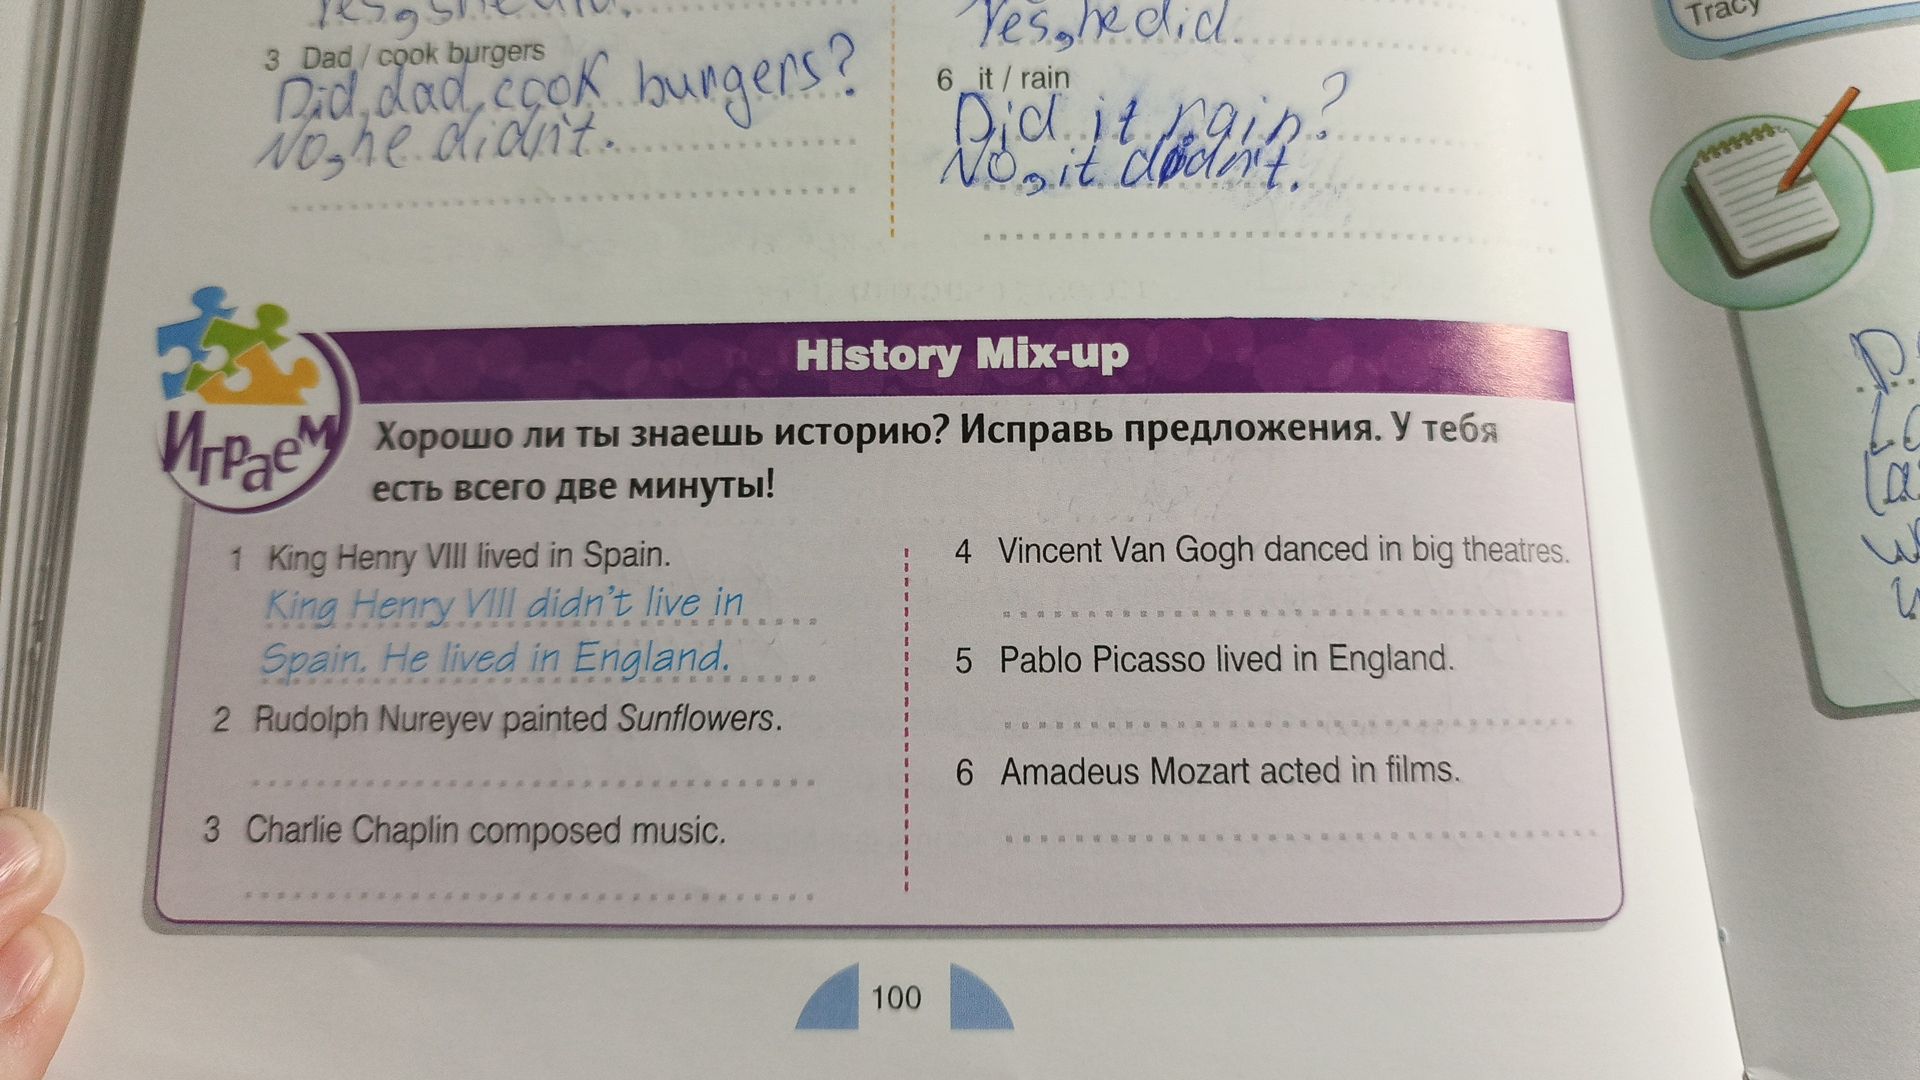 3 Dad / cook burgers
Did dad cook burgers?
No, he didn't.
Yes, he did.
6 it / rain
Did it rain?
No, it didn't.
Tracy
History Mix-up
Играем
Хорошо ли ты знаешь историю? Исправь предложения. У тебя
есть всего две минуты!
1 King Henry VIII lived in Spain.
King Henry VIII didn't live in
Spain. He lived in England.
2 Rudolph Nureyev painted Sunflowers.
3 Charlie Chaplin composed music.
4 Vincent Van Gogh danced in big theatres.
5 Pablo Picasso lived in England.
6 Amadeus Mozart acted in films.
100